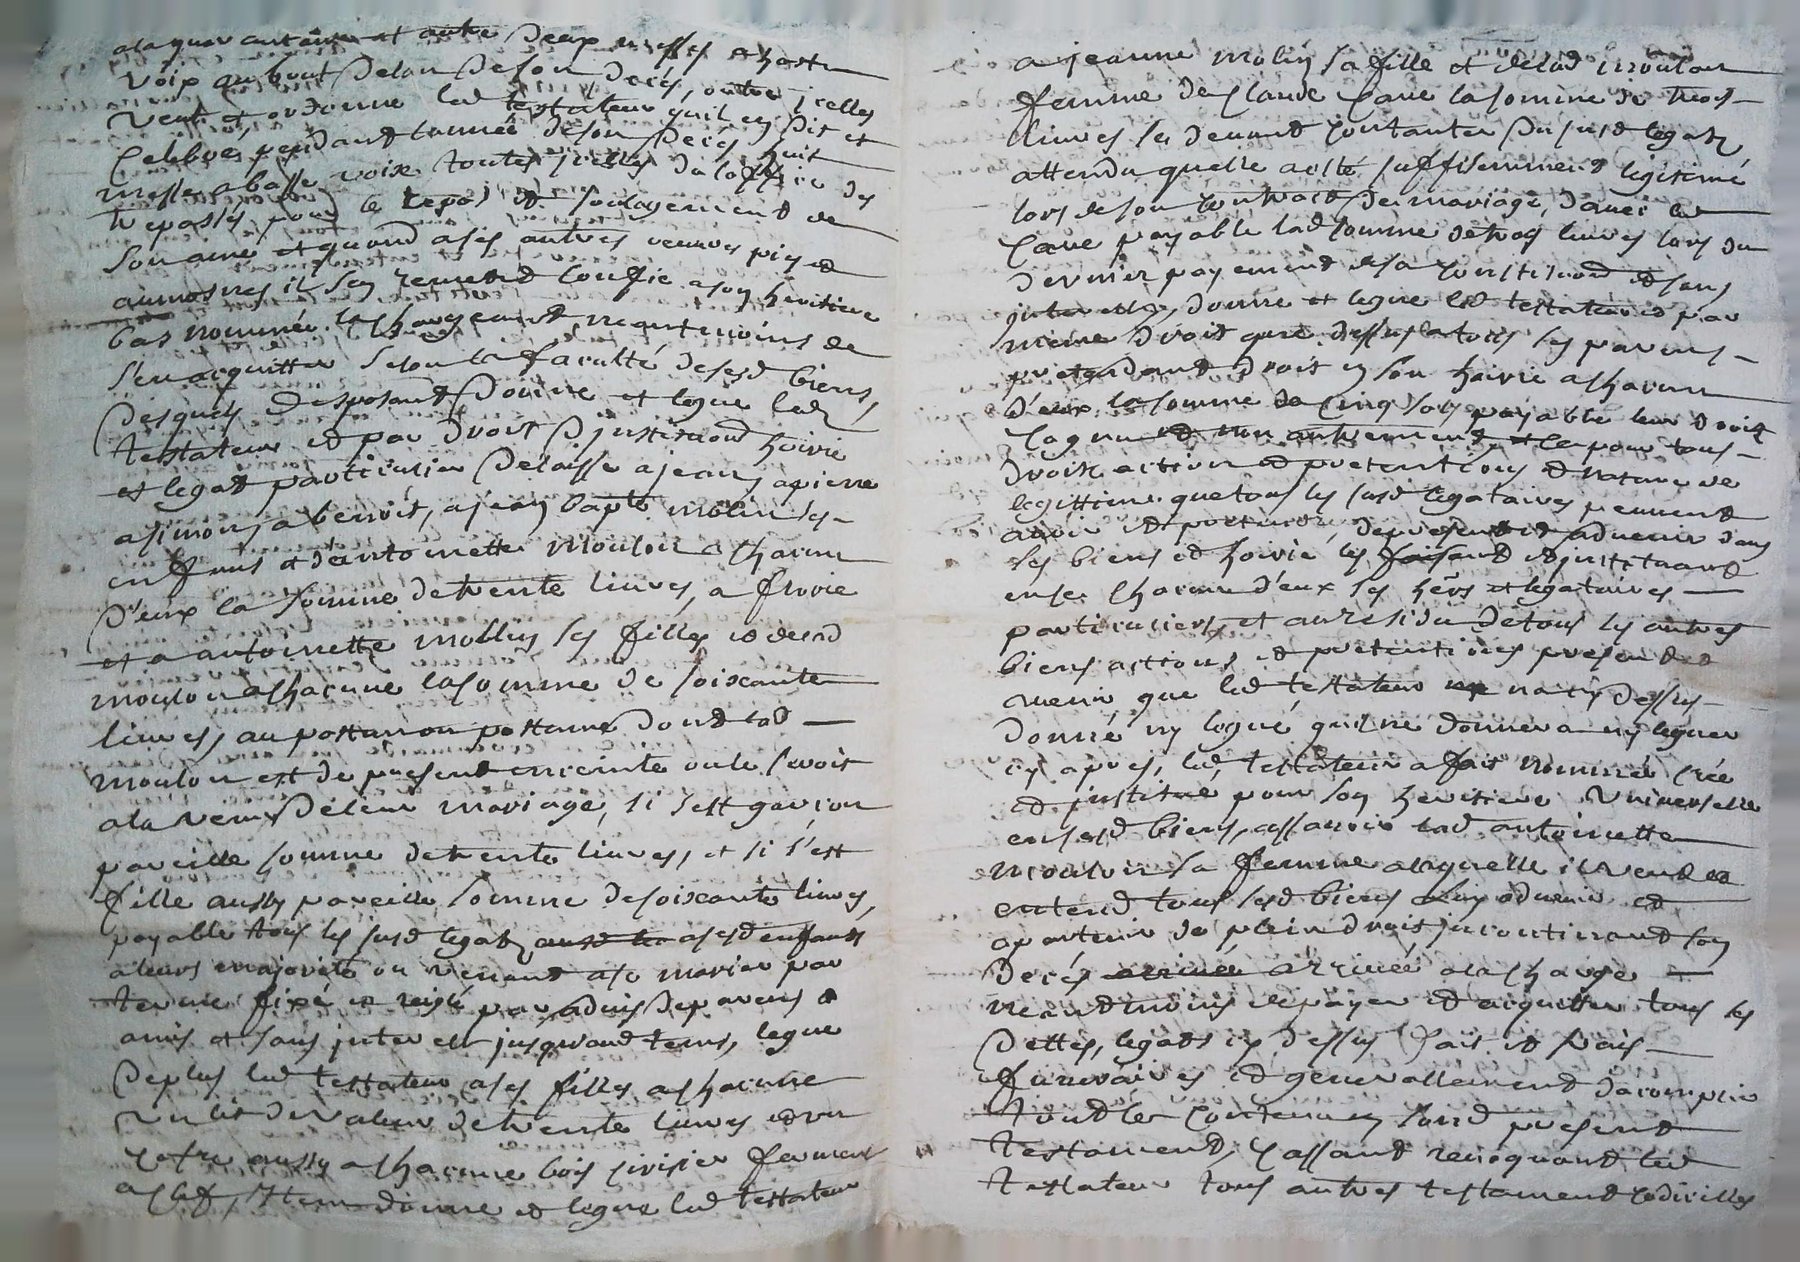 a la quarantaine et autre deux messes a haute
voix au bout de lan de son deces, outre jcelles
veut et ordonne led testateur quil en dit et
celebré pendant lannée de son deces huit
messe a basse voix toutes jcelles de loffice des
trepassés pour le repos et soulagement de
son ame et quand a ses autres œuvres pies et
aumosnes il sen remet et confie a son heritiere
bas nommée la chargeant neantmoins de
s'en acquitter selon la faculté de sesd biens,
desquels disposant donne et legue led
testateur et par droit d'jnstitution hoirie
et legat particulier delaisse a jean, a pierre
a simon, a benoit, a jean bapte molin ses
enfans et d'antoinette Moulon a chacun
d'eux la somme de trente livres, a fleurie
et a antoinette mollin ses filles et de lad
moulon a chacune la somme de soixante
livres, au postume ou postume dont lad
moulon est de present enceinte ou le seroit
a la venir de leur mariage, si s'est garçon
pareille somme de trente livres, et si s'est
fille aussy pareille somme de soixante livres,
payable tous les susd legats a sesd enfants
a leurs majorité ou venant a se marier par
terme fixé et reiglé par advis de parens et
amis et sans jnterest jusquaud tems, legue
de plus led testateur a ses filles a chacune
un lit de valeur de trente livres et un
cofre aussy a chacune bois cirisier fermant
a clef, Item donne et legue led testateur
a jeanne molin sa fille et delad moulon
femme de Claude Cave la somme de trois
livres se devant contanter du susd legat,
attendu quelle a esté suffisemment legitimé
lors de son contract de mariage, d'avec led
Cave payable lad somme de trois livres lors du
dernier payement de sa constitution et sans
jnterests, donne et legue led testateur et par
meme droit que dessus a tous ses parens
pretendant droit en son hoirie a chacun
d'eux la somme de cinq sols payable leur droit
cognu et non autrement, et ce pour tous
droits action et pretentions et nature de
legittime que tous les susd legataires peuvent
avoir et pretendre, de present et advenir dans
ses biens et hoirie les faisant et jnstituant
en ce chacun d'eux ses hers et legataires
particuliers, et au residu de tous les autres
biens actions et pretentions present et
avenir que led testateur na cy dessus
donné ny legué, quil ne donnera ny leguer
cy apres, led testateur a fait nommé créé
et jnstitué pour son heritiere Universelle
en sesd biens, assavoir lad antoinette
moulon sa femme a laquelle il veut et
entend tous sesd biens advenir et
apartenir de plein droit jncontinant son
deces arrivée a la charge
neantmoins de payer et acquitter tous les
dettes, legats cy dessus fait et frais
funeraires et generallement d'acomplir
tout le contenu en sond present
testament, Cassant revoquant led
testateur tous autres testament codicilles